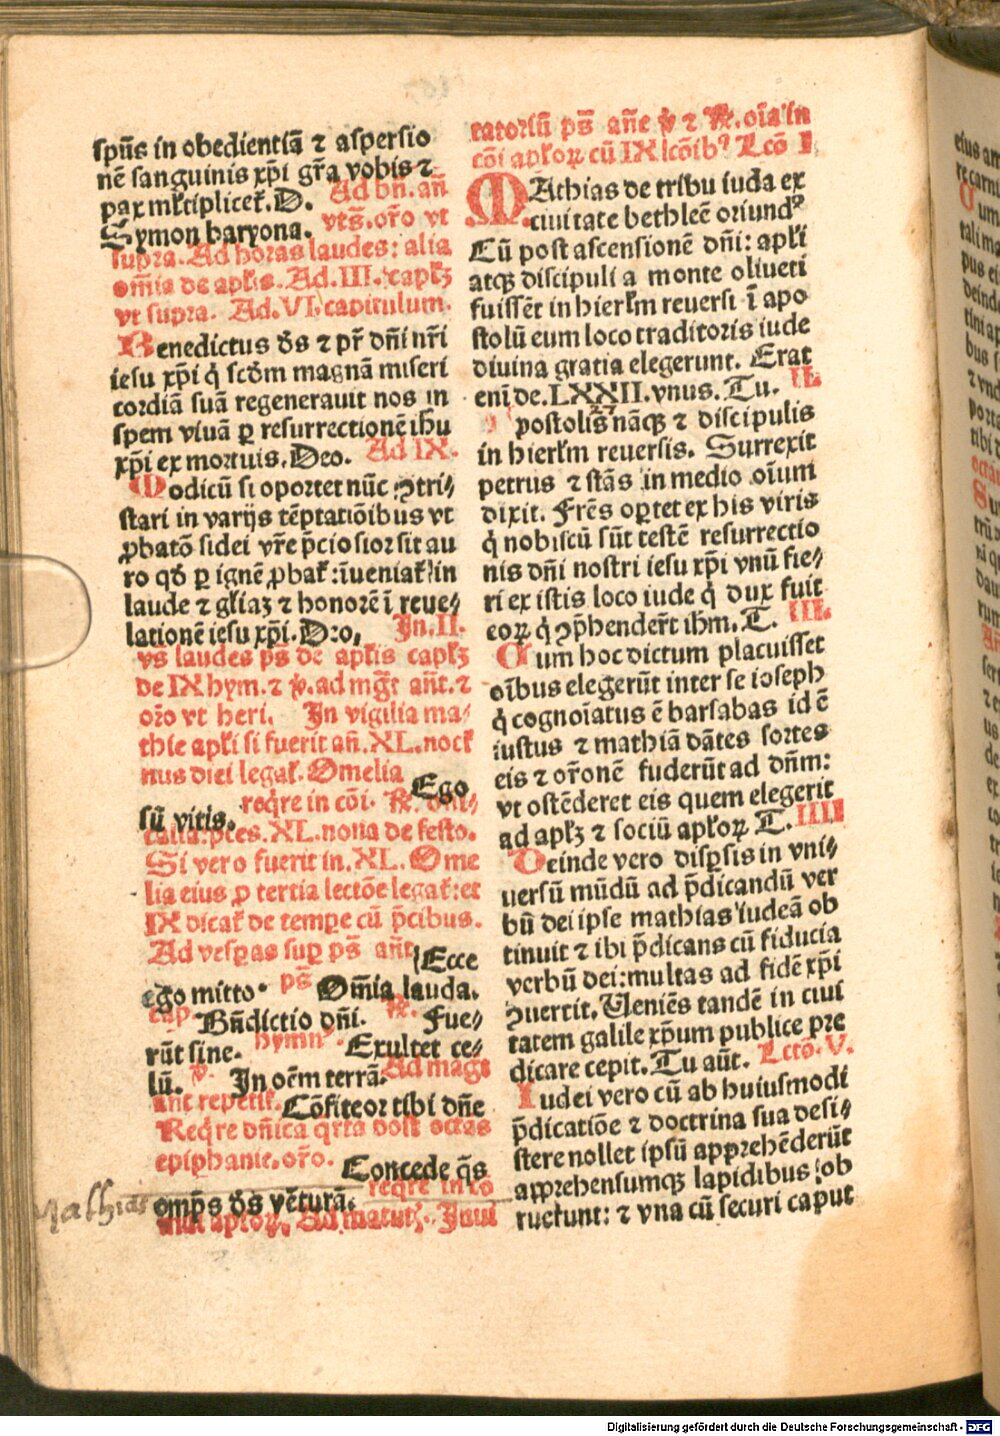 spūs in obedientiā ⁊ aspersio
nē sanguinis xp̄i gr̄a vobis ⁊
pax mltiplicet̄. D. Ad bn̄. an̄
Symon baryona. vts̄. or̄o vt
supra. Ad horas laudes: alia
om̄ia de apl̄is. Ad. III. capl̄ꝫ
vt supra. Ad. VI. capitulum.
Benedictus d̄s ⁊ pr̄ dn̄i nr̄i
iesu xp̄i q̄ scd̄m magnā miseri
cordiā suā regenerauit nos in
spem viuā ꝑ resurrectionē ihū
xp̄i ex mortuis. Deo. Ad IX.
Modicū si oportet nūc ꝯtri⸗
stari in varijs tēptatiōibus vt
ꝓbatō fidei vr̄e p̄ciosior sit au
ro qd̄ ꝑ ignē ꝓbat̄: īueniat̄ in
laude ⁊ gl̄iaꝫ ⁊ honorē ī reue⸗
lationē iesu xp̄i. Deo. In. II.
vs̄ laudes ps̄ de apl̄is capl̄ꝫ
de IX hym. ⁊ ℣. ad mḡt an̄t. ⁊
or̄o vt heri. In vigilia ma⸗
thie apl̄i si fuerit an̄. XL. noct̄
nus diei legat̄. Omelia Ego
sū vitis. req̄re in cōi. ℟. dn̄i⸗
calia. p̄ces. XL. nona de festo.
Si vero fuerit in. XL. Ome
lia eius ꝓ tertia lectōe legat̄: et
IX dicat̄ de tempe cū p̄cibus.
Ad vesꝑas suꝑ ps̄ an̄t Ecce
ego mitto. ps̄ Om̄ia lauda.
cap. Bn̄dictio dn̄i. ℟. Fue⸗
rūt sine. hymn⁹ Exultet ce⸗
lū. ℣. In oēm terrā. Ad magt
ant repetit̄. Cōfiteor tibi dn̄e
Req̄re dn̄ica q̄rta post octas
epiphanie. or̄o. Concede q̄s
omp̄s d̄s vēturā. req̄re in cō
muni apl̄oꝝ. Ad matut̄. Inui
Mathias
tatoriū ps̄ an̄e ℣ ⁊ ℟. oīa in
cōi apl̄oꝝ cū IX lcōib⁹ Lcō I
MAthias de tribu iuda ex
ciuitate bethleē oriund⁹
Cū post ascensionē dn̄i: apl̄i
atqꝫ discipuli a monte oliueti
fuissēt in hierl̄m reuersi ī apo
stolū eum loco traditoris iude
diuina gratia elegerunt. Erat
eni de. LXXII. vnus. Tu. II.
Apostolis nāqꝫ ⁊ discipulis
in hierl̄m reuersis. Surrexit
petrus ⁊ stās in medio oīum
dixit. Frēs oꝑtet ex his viris
q̄ nobiscū sūt testē resurrectio
nis dn̄i nostri iesu xp̄i vnū fie⸗
ri ex istis loco iude q̄ dux fuit
eoꝝ q̄ ꝯp̄hender̄t ihm̄. T. III.
Cum hoc dictum placuisset
oībus elegerūt inter se ioseph
q̄ cognoīatus ē barsabas id ē
iustus ⁊ mathiā dātes sortes
eis ⁊ or̄onē fuderūt ad dn̄m:
vt ostēderet eis quem elegerit
ad apl̄ꝫ ⁊ sociū apl̄oꝝ T. IIII
Deinde vero disꝑsis in vni⸗
uersū mūdū ad p̄dicandū ver
bū dei ipse mathias iudeā ob
tinuit ⁊ ibi p̄dicans cū fiducia
verbū dei: multas ad fidē xp̄i
ꝯuertit. Ueniēs tandē in ciui
tatem galile xp̄um publice pre
dicare cepit. Tu aūt. Lctō. V.
Iudei vero cū ab huiusmodi
p̄dicatiōe ⁊ doctrina sua desi⸗
stere nollet ipsū apprehēderūt
apprehensumqꝫ lapidibus ob
ruerunt: ⁊ vna cū securi caput
Digitalisierung gefördert durch die Deutsche Forschungsgemeinschaft - DFG